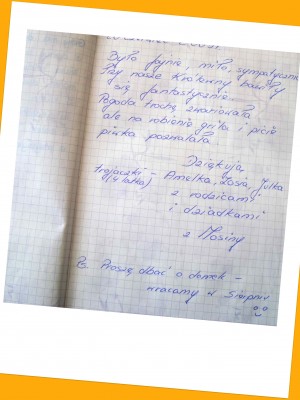 Było fajnie, miło, sympatycznie
Trzy nasze Królewny bawiły
się fantastycznie.
Pogoda trochę zwariowała
ale na robienie grilla i picie
piwka pozwalała
Dziękują
trojaczki - Amelka, Zosia, Julka
(4 latka)
z rodzicami
i dziadkami
z Mosiny
Ps. Proszę dbać o domek -
wracamy w sierpniu